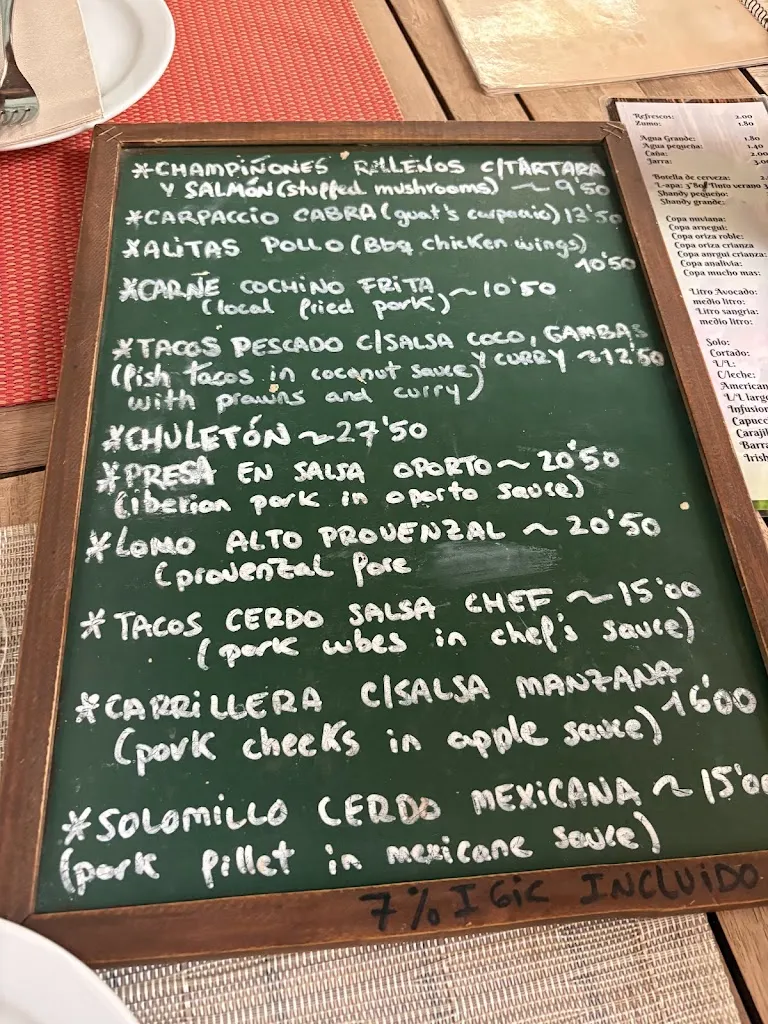 *CHAMPIÑONES RELLENOS C/TÁRTARA
Y SALMÓN (stuffed mushrooms) ~ 9'50
*CARPACCIO CABRA (goat's carpaccio) 13'50
*ALITAS POLLO (Bbq chicken wings)
10'50
*CARNE COCHINO FRITA ~ 10'50
(local fried pork)
*TACOS PESCADO C/SALSA COCO, GAMBAS
Y CURRY ~ 12'50
(fish tacos in coconut sauce)
with prawns and curry)
*CHULETÓN ~ 27'50
*PRESA EN SALSA OPORTO ~ 20'50
(iberion pork in oporto sauce)
*LOMO ALTO PROVENZAL ~ 20'50
(provenzal
*TACOS CERDO SALSA CHEF ~ 15'00
(pork wbes in chef's sauce)
*CARRILLERA C/SALSA MANZANA
16'00
(pork cheeks in apple sauce)
*SOLOMILLO CERDO MEXICANA ~ 15'00
(pork fillet in mexicane sauce)
7% IGIC INCLUIDO
Refrescos: 2.00
Zumo: 1.80
Agua Grande: 1.80
Agua pequeña: 1.40
Caña: 2.00
Jarra:
Botella de cerveza:
Tinto verano
Shandy pequeño:
Shandy grande:
Copa nuviana:
Copa arnegui:
Copa oriza roble:
Copa oriza crianza
Copa anrgui crianza:
Copa analivia:
Copa mucho mas:
Litro Avocado:
medio litro:
Litro sangria:
medio litro:
Solo:
Cortado:
L/L:
C/leche:
American
L/L larg
Infusion
Capucc
Carajil
Barra
Irish